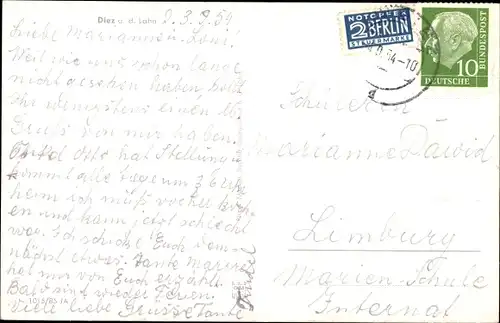 Diez a. d. Lahn
D. 3. 9. 54
Liebe Marianne u. Loni!
Weil wir uns schon lange
nicht gesehen haben, sollt
ihr wenigstens einen lb.
Gruß von mir haben.
hat Stellung u.
kommt alle Tage um
heim ich muß vorher koch-
en und kann jetzt schlecht
weg. Ich schicke Euch dem-
nächst etwas. Tante Maria
hat mir von Euch erzählt.
Bald sind wieder Ferien.
Viele liebe Grüsse Tante
NOTOPFER
2 BERLIN
STEUERMARKE
10
DEUTSCHE
BUNDESPOST
Schülerin
Marianne Dawid
Limburg
Marien-Schule
Internat